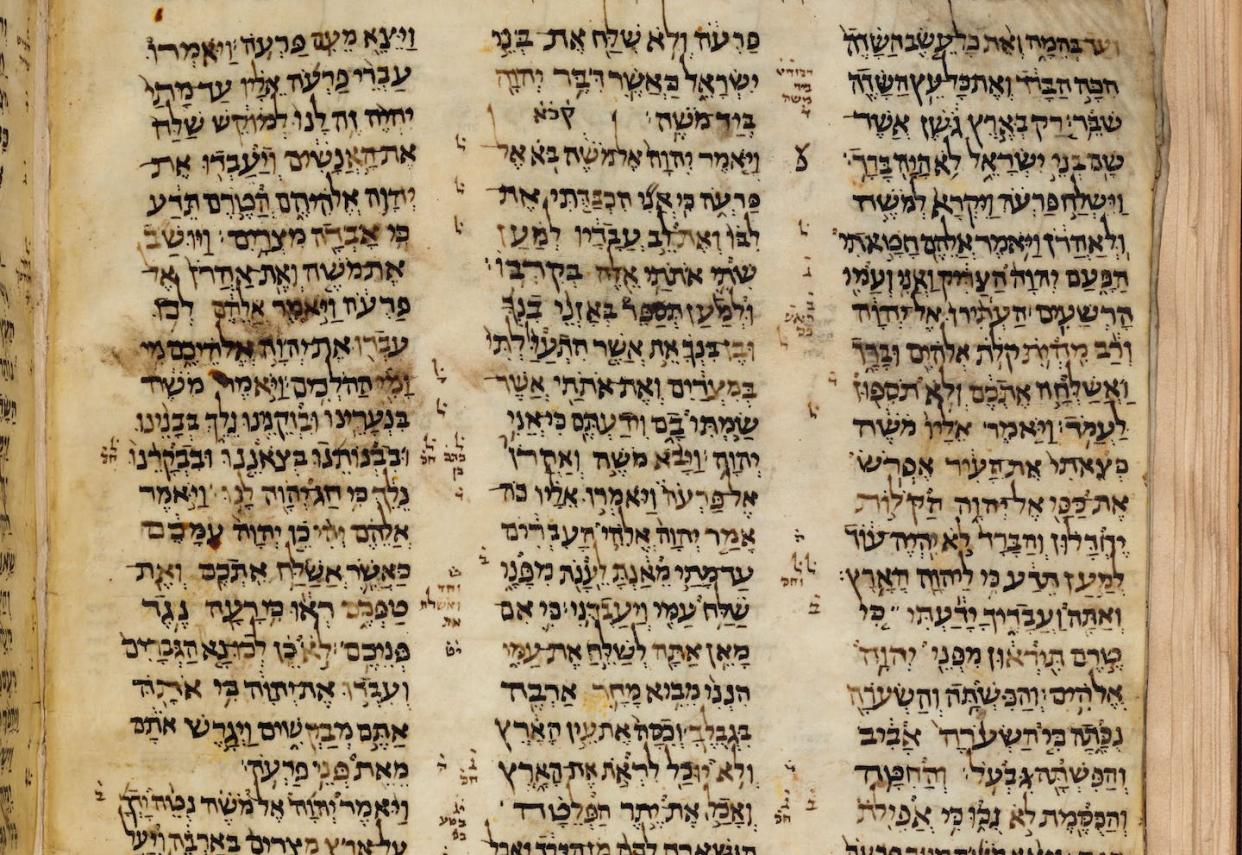 ועד בהמה ואת כל עשב השדה
הכה הברד ואת כל עץ השדה
שבר׃ רק בארץ גשן אשר
שם בני ישראל לא היה ברד׃
וישלח פרעה ויקרא למשה
ולאהרן ויאמר אלהם חטאתי
הפעם יהוה הצדיק ואני ועמי
הרשעים׃ העתירו אל יהוה
ורב מהית קלת אלהים וברד
ואשלחה אתכם ולא תספון
לעמד׃ ויאמר אליו משה
כצאתי את העיר אפרש
את כפי אל יהוה הקלות
יחדלון והברד לא יהיה עוד
למען תדע כי ליהוה הארץ׃
ואתה ועבדיך ידעתי כי
טרם תיראון מפני יהוה
אלהים׃ והפשתה והשערה
נכתה כי השערה אביב
והפשתה גבעל׃ והחטה
והכסמת לא נכו כי אפילת
פרעה ולא שלח את בני
ישראל כאשר דבר יהוה
ביד משה׃
ויאמר יהוה אל משה בא אל
פרעה כי אני הכבדתי את
לבו ואת לב עבדיו למען
שתי אתתי אלה בקרבו׃
ולמען תספר באזני בנך
ובן בנך את אשר התעללתי
במצרים ואת אתתי אשר
שמתי בם וידעתם כי אני
יהוה׃ ויבא משה ואהרן
אל פרעה ויאמרו אליו כה
אמר יהוה אלהי העברים
עד מתי מאנת לענת מפני
שלח עמי ויעבדני׃ כי אם
מאן אתה לשלח את עמי
הנני מביא מחר ארבה
בגבלך׃ וכסה את עין הארץ
ולא יוכל לראת את הארץ
ואכל את יתר הפלטה
ויצא מעם פרעה׃ ויאמרו
עבדי פרעה אליו עד מתי
יהיה זה לנו למוקש שלח
את האנשים ויעבדו את
יהוה אלהיהם הטרם תדע
כי אבדה מצרים׃ ויושב
את משה ואת אהרן אל
פרעה ויאמר אלהם לכו
עבדו את יהוה אלהיכם מי
ומי ההלכים׃ ויאמר משה
בנערינו ובזקנינו נלך בבנינו
ובבנותנו בצאננו ובבקרנו
נלך כי חג יהוה לנו׃ ויאמר
אלהם יהי כן יהוה עמכם
כאשר אשלח אתכם ואת
טפכם ראו כי רעה נגד
פניכם׃ לא כן לכו נא הגברים
ועבדו את יהוה כי אתה
אתם מבקשים ויגרש אתם
מאת פני פרעה׃
ויאמר יהוה אל משה נטה ידך
על ארץ מצרים בארבה ויעל